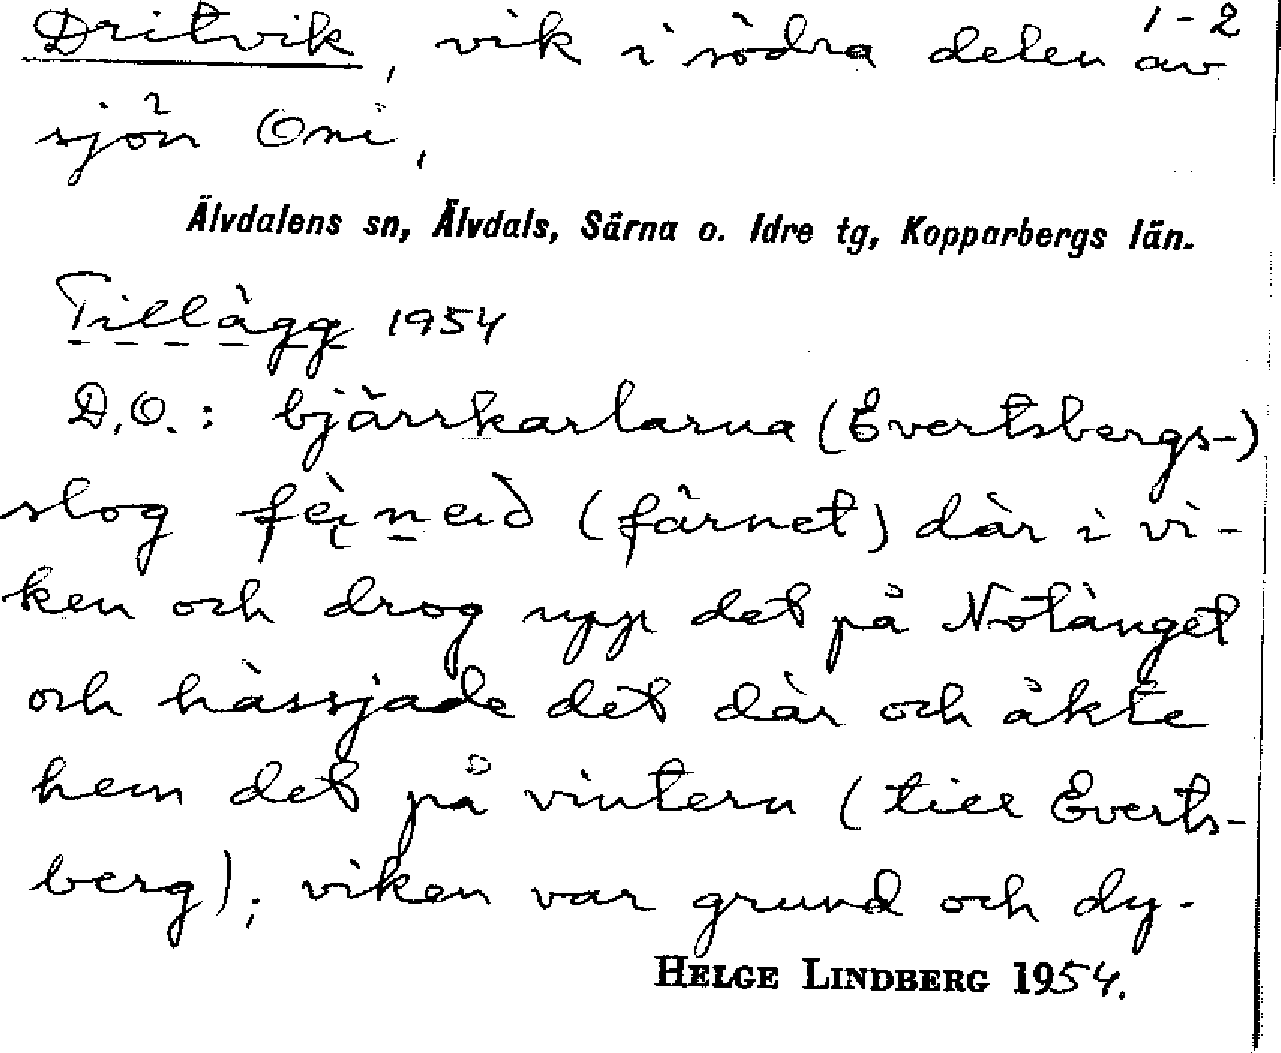 1-2
Dritvik, vik i södra delen av
sjön Oni,
Älvdalens sn, Älvdals, Särna o. Idre tg, Kopparbergs län.
Tillägg 1954
D.O.: bjärrkarlarna (Evertsbergs-)
slog (färnet) där i vi-
ken och drog upp det på Notänget
och hässjade det där och åkte
hem det på vintern (till Everts-
berg); viken var grund och dy-
HELGE LINDBERG 1954.